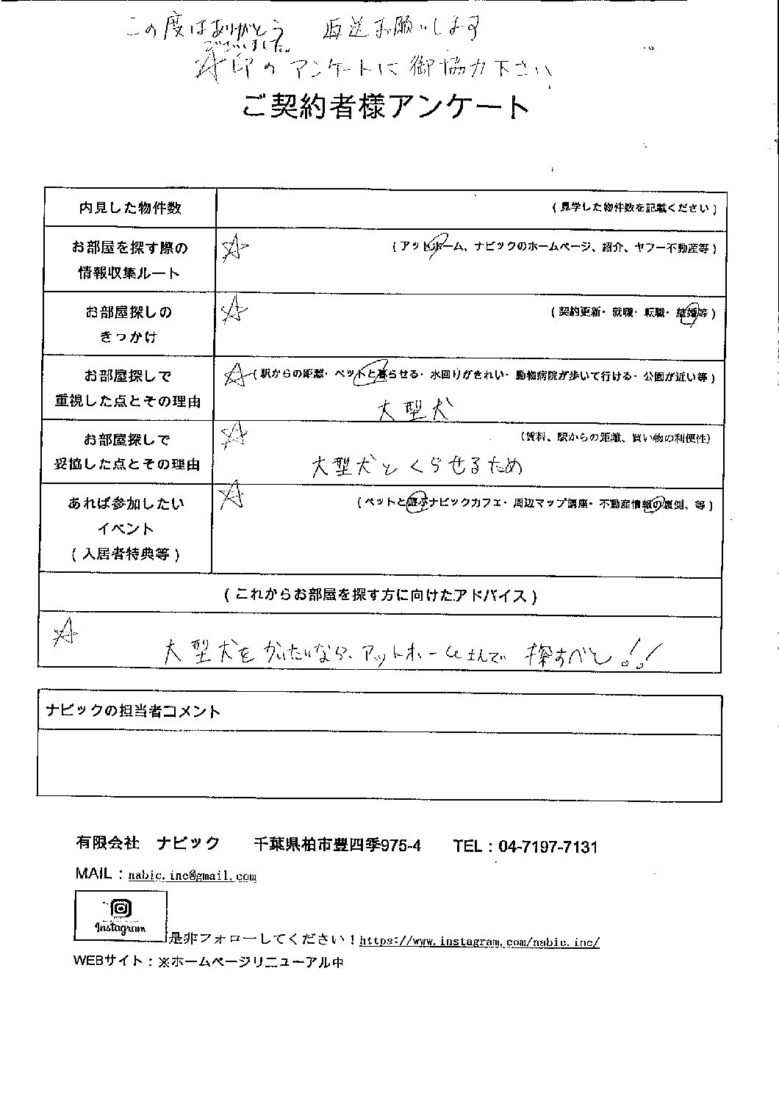 この度はありがとう
ございました。
返送お願いします
☆印のアンケートに御協力下さい
ご契約者様アンケート
内見した物件数
(見学した物件数を記載ください)
お部屋を探す際の
情報収集ルート
☆
(アットホーム、ナビックのホームページ、紹介、ヤフー不動産等)
お部屋探しの
きっかけ
☆
(契約更新・就職・転職・結婚等)
お部屋探しで
重視した点とその理由
☆(駅からの距離・ペットと暮らせる・水回りがきれい・動物病院が歩いて行ける・公園が近い等)
大型犬
お部屋探しで
妥協した点とその理由
☆
(賃料、駅からの距離、買い物の利便性)
大型犬とくらせるため
あれば参加したい
イベント
(入居者特典等)
☆
(ペットと遊ぶナビックカフェ・周辺マップ講座・不動産情報の裏側、等)
(これからお部屋を探す方に向けたアドバイス)
☆
大型犬をかいたいなら、アットホーム
探すべし!!
ナビックの担当者コメント
有限会社 ナビック 千葉県柏市豊四季975-4 TEL:04-7197-7131
MAIL:nabic.inc@gmail.com
Instagram
是非フォローしてください!https://www.instagram.com/nabic.inc/
WEBサイト:※ホームページリニューアル中